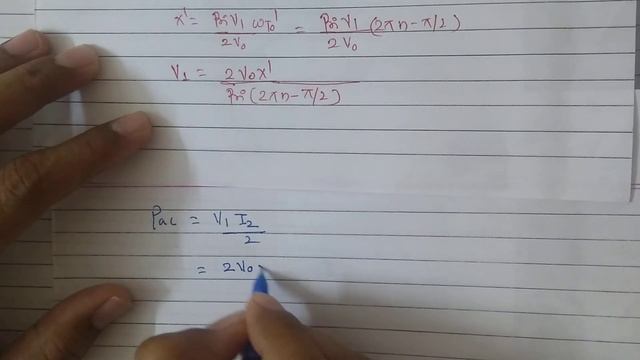 x' = βi V1 ωτ0' / 2V0 = βi V1 / 2V0 (2πn - π/2)
V1 = 2V0 x' / βi (2πn - π/2)
Pac = V1 I2 / 2
= 2V0